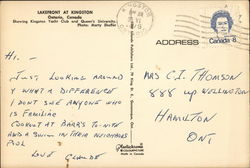 LAKEFRONT AT KINGSTON
Ontario, Canada
Showing Kingston Yacht Club and Queen's University.
Photo: Marty Shaffer
KINGSTON
ADDRESS
CANADA 8
HI -
JUST LOOKING AROUND
& WHAT A DIFFERENCE
I DON'T SEE ANYONE WHO
IS FAMILIAR
COOKOUT AT BARR'S TO-NITE
AND A SWIM IN THEIR NEIGHBORS
POOL
LOVE
MRS C.I. THOMSON
888 UP WELLINGTON
HAMILTON
ONT